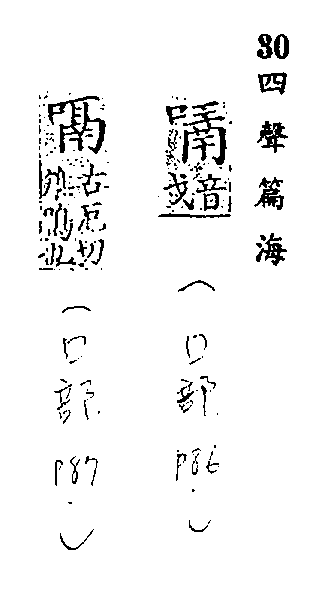 30
四聲篇海
音
（口部 P86.）
嗝
古厄切
鳴也
（口部 P87.）